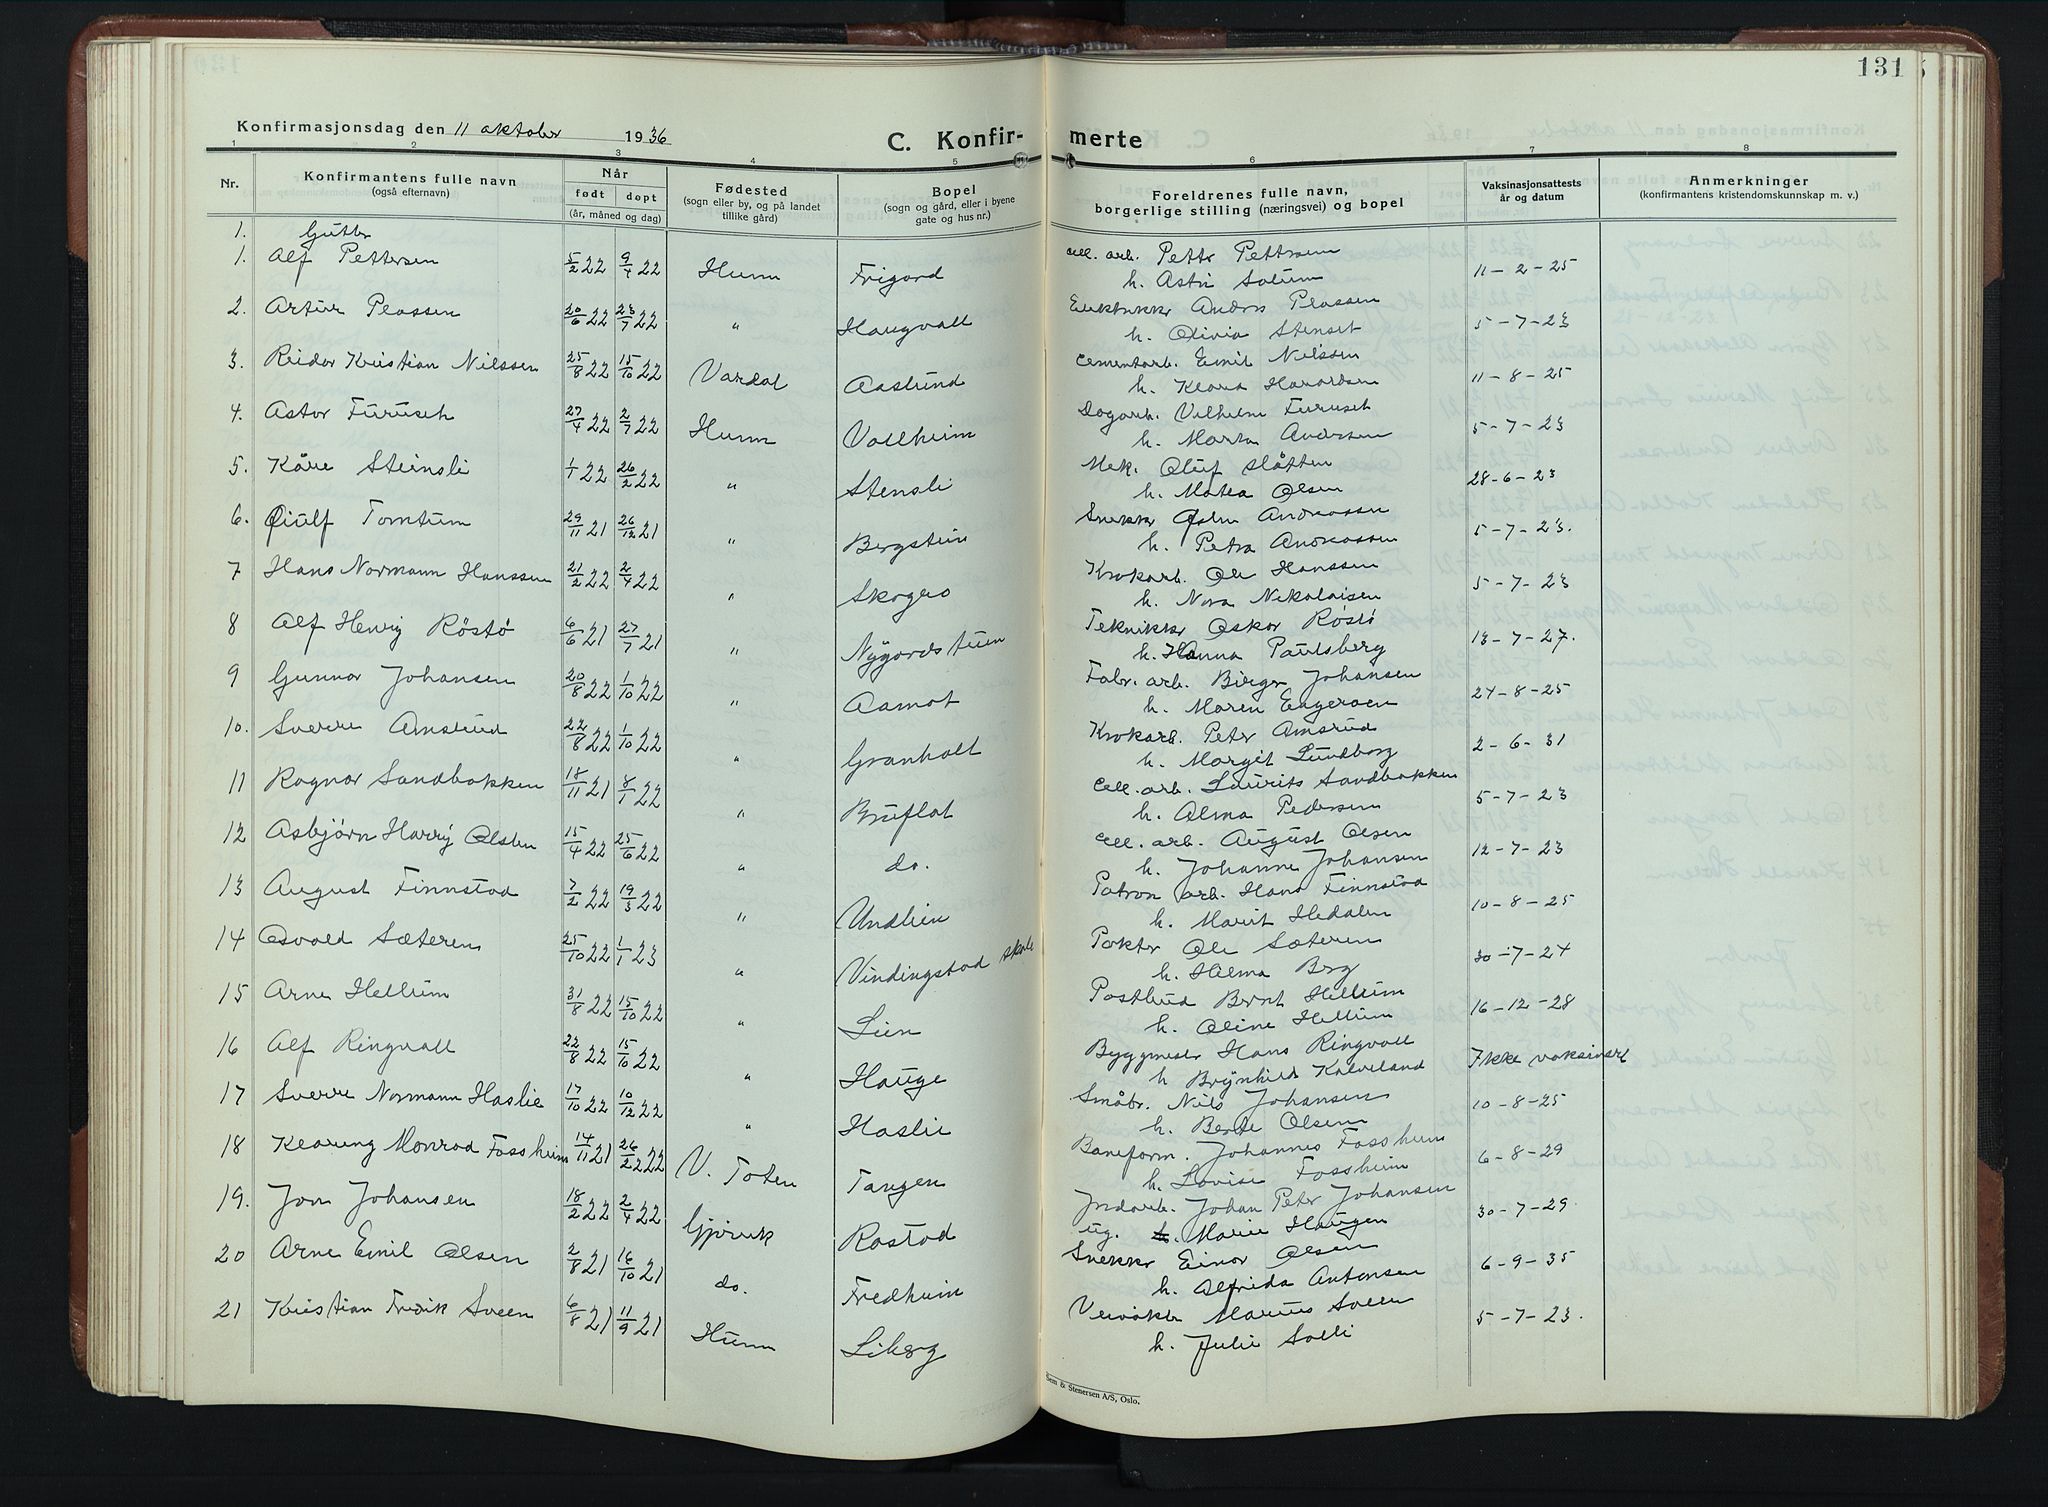 131
Konfirmasjonsdag den 11 oktober 1936
C. Konfir- merte
1 2 3 4 5 6 7 8
Nr. Konfirmantens fulle navn (også efternavn) Når født døpt (år, måned og dag) Fødested (sogn eller by, og på landet tillike gård) Bopel (sogn og gård, eller i byene gate og hus nr.) Foreldrenes fulle navn, borgerlige stilling (næringsvei) og bopel Vaksinasjonsattests år og datum Anmerkninger (konfirmantens kristendomskunnskap m. v.)
1. Gutter
1. Alf Pettersen 5/2 22 9/4 22 Hunn Frigord Cell. arb. Petter Pettersen 11-2-25
h. Astri Solum
2. Artur Plassen 20/6 22 23/7 22 " Haugvall Elektriker Anders Plassen 5-7-23
h. Olivia Stenset
3. Reidar Kristian Nilssen 25/8 22 15/10 22 Vardal Aaslund Cementarb. Emil Nilssen 11-8-25
h. Klara Havardsen
4. Astor Furuseth 27/4 22 2/7 22 Hunn Vollheim Dagarb. Vilhelm Furuset 5-7-23
h. Marta Andersen
5. Kåre Steinsli 1/1 22 26/2 22 " Stensli Mek. Oluf Slåtten 28-6-23
h. Matea Olsen
6. Eiulf Tomtum 29/11 21 26/12 21 " Bergstein Snekker Andreassen 5-7-23.
h. Petra Andreassen
7 Hans Normann Hanssen 21/2 22 2/4 22 " Skogro Krokarb. Ole Hanssen 5-7-23
h. Nora Nikolaisen
8 Alf Henry Röstö 6/6 21 27/7 21 " Nygordstuen Tekniker Oskar Röstö 13-7-27.
h. Hanna Paulsberg
9 Gunnar Johansen 20/8 22 1/10 22 " Aamot Fabr. arb. Birger Johansen 24-8-25
h. Maren Engeroen
10. Sverre Amslund 22/8 22 1/10 22 " Granholt Krokarb. Peter Amsrud 2-6-31
h. Margit Lundborg
11 Ragnar Sandbakken 18/11 21 8/1 22 " Bruflat Cell. arb. Laurits Sandbakken 5-7-23
h. Alma Pedersen
12 Asbjörn Harry Olsen 15/4 22 25/6 22 " do. Cell. arb. August Olsen 12-7-23
h. Johanne Johansen
13 August Finnstad 7/2 22 19/3 22 " Undlien Patron arb. Hans Finnstad 10-8-25
h. Marit Hedalen
14 Osvald Sæteren 25/10 22 1/1 23 " Vindingstad skole Pakter Ole Sæteren 30-7-24
h. Helma Berg
15 Arne Hellum 31/8 22 15/10 22 " Lien Postbud Bernt Hellum 16-12-28
h. Oline Hellum
16 Alf Ringvall 22/8 22 15/10 22 " Hauge Byggmester Hans Ringvoll Ikke vaksinert
h Brynhild Kalveland
17 Sverre Normann Haslie 17/10 22 10/12 22 " Haslie Småbr. Nils Johansen 10-8-25
h. Berte Olsen
18 Klaring Monrad Fossheim 14/11 21 26/2 22 V. Toten Tangen Baneform. Johannes Fossheim 6-8-29
h. Lovise Fossheim
19. Jon Johansen 18/2 22 2/4 22 Gjøvik Rostad Indarb. Johan Peter Johansen 30-7-29.
ug. h. Marie Haugen
20 Arne Emil Olsen 2/8 21 16/10 21 do. Fredheim Snekker Einar Olsen 6-9-35
h. Alfrida Antonsen
21 Kristian Fredrik Sveen 6/8 21 11/9 21 Hunn Liberg Veivokter Marius Sveen 5-7-23.
h. Julie Solli
Sem & Stenersen A/S, Oslo.